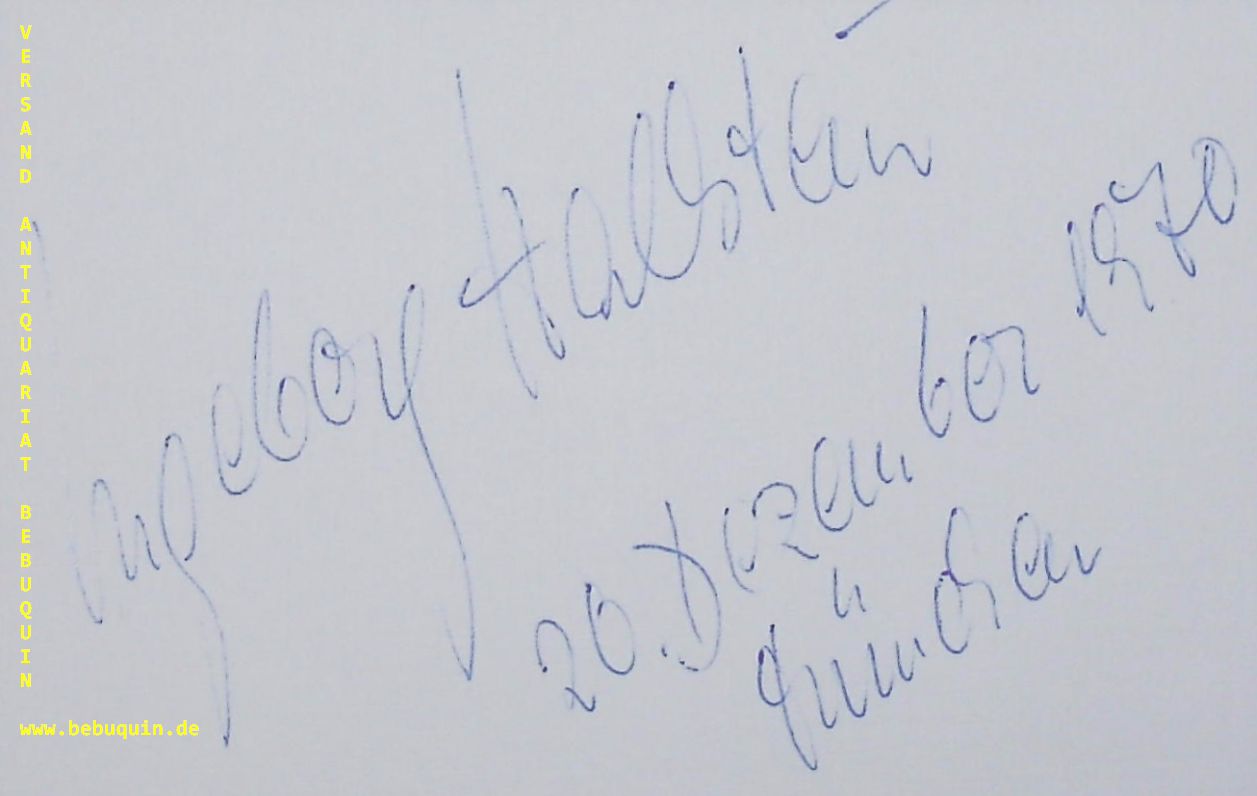 VERSAND ANTIQUARIAT BEBUQUIN
www.bebuquin.de
Ingeborg Hallstein
20. Dezember 1970
München